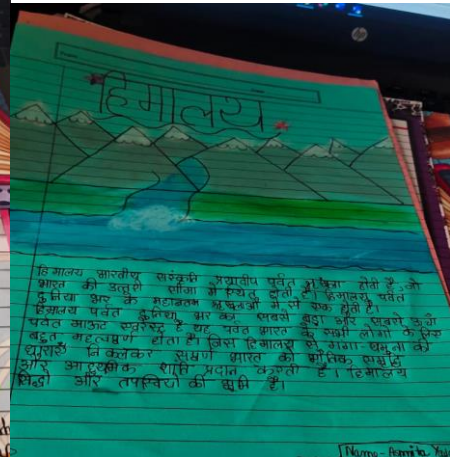 हिमालय
हिमालय भारतीय संस्कृति पर्वत होती है, जो
भारत की उत्तरी सीमा में स्थित होती है। हिमालय पर्वत
दुनिया भर के महानतम में से एक होती है।
हिमालय पर्वत दुनिया भर का सबसे बड़ा और सबसे ऊंचा
पर्वत माऊंट एवरेस्ट है यह पर्वत भारत के सभी लोगो के लिए
बहुत महत्वपूर्ण होता है। जिस हिमालय से गंगा यमुना की
धाराएँ निकलकर सम्पूर्ण भारत को भौतिक समृद्धि
और आध्यात्मिक शांति प्रदान करती है। हिमालय
सिद्धो और तपस्वियों की भूमि है।
Name- Asmita